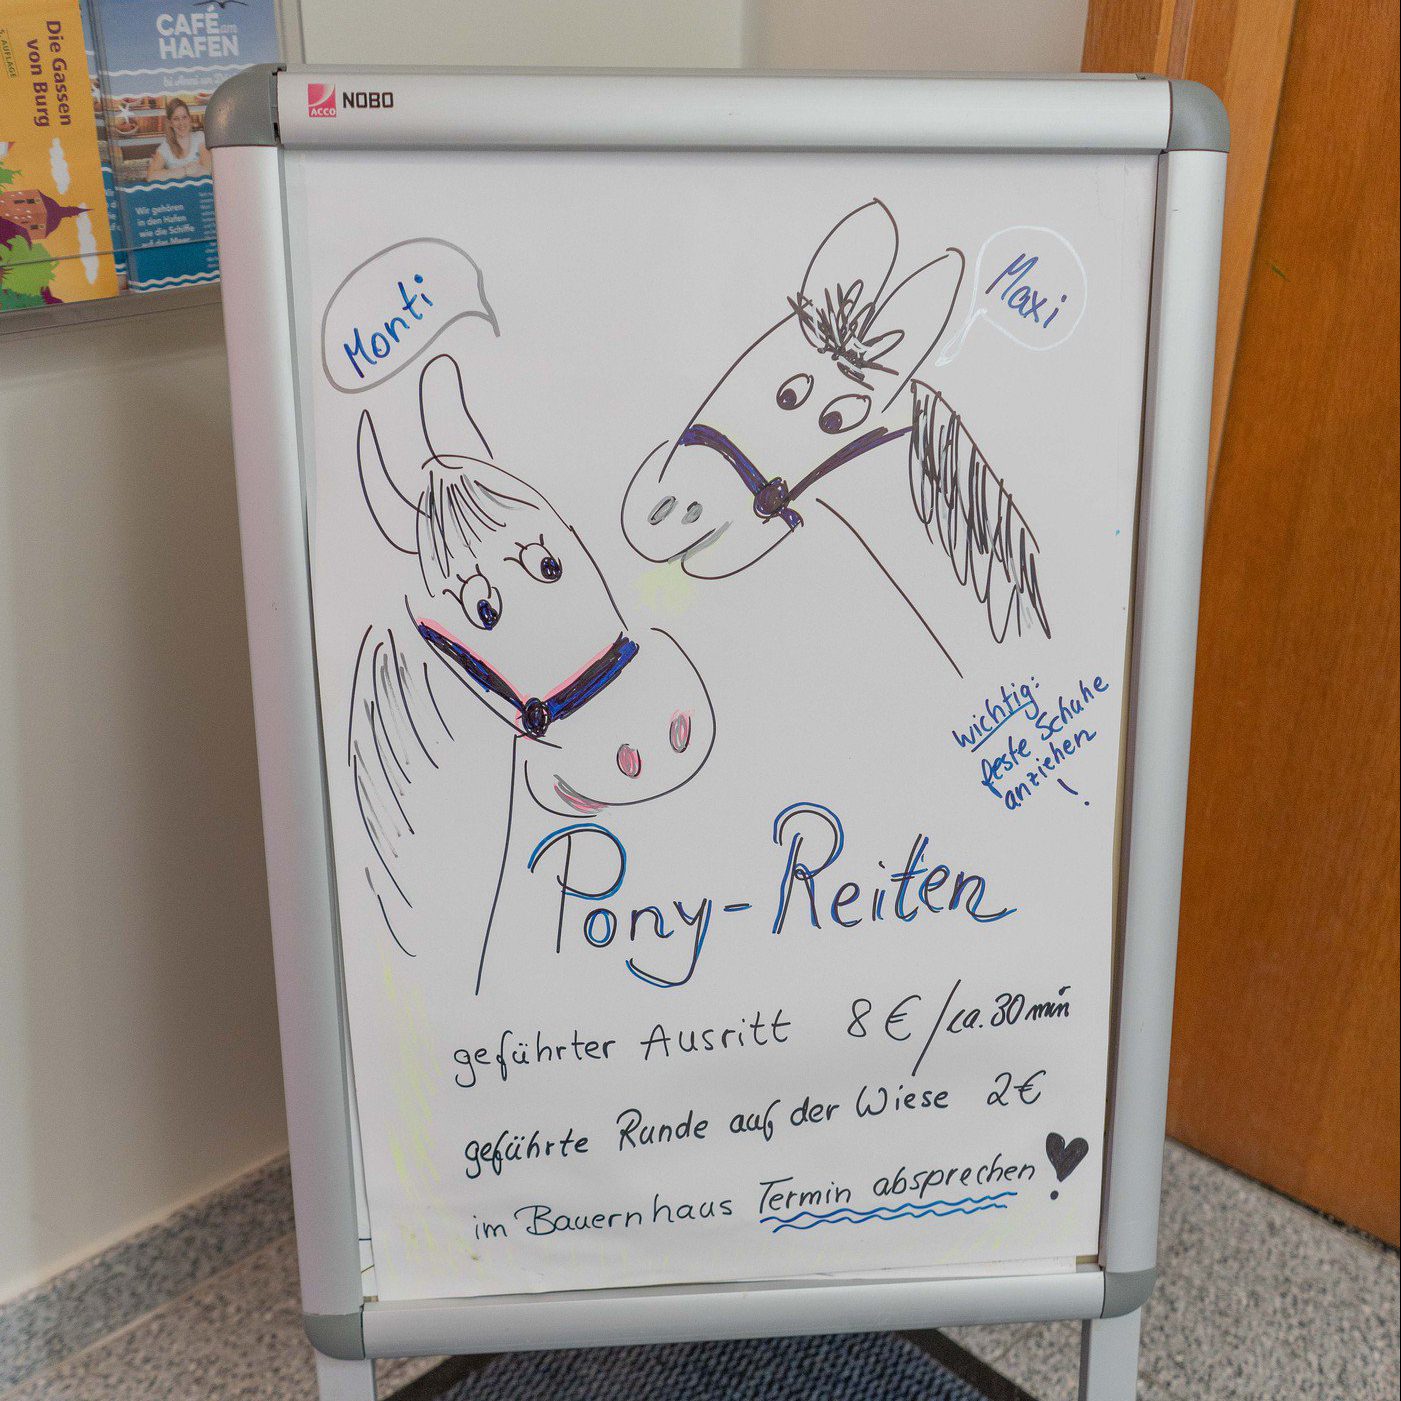 Die Gassen
von Burg
5. AUFLAGE
CAFÉ am
HAFEN
Wir gehören
in den Hafen
wie die Schiffe
auf das Meer
ACCO
NOBO
Monti
Maxi
wichtig:
feste Schuhe
anziehen
!
Pony-Reiten
geführter Ausritt 8€/ca. 30 min
geführte Runde auf der Wiese 2€
im Bauernhaus Termin absprechen!